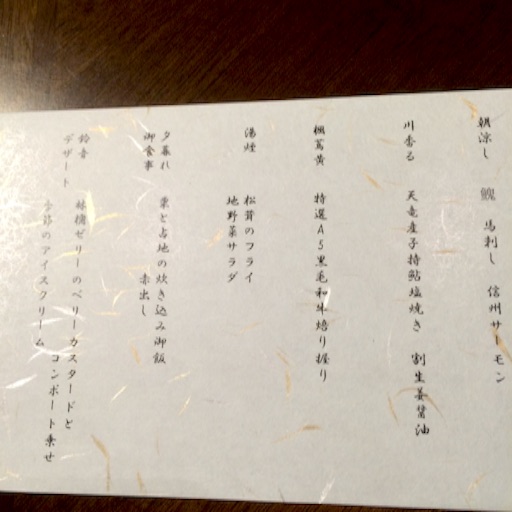 朝涼し 鯢 馬刺し 信州サーモン
川香る 天竜産子持鮎塩焼き 割生姜醤油
楓蔦黄 特選A5黒毛和牛焙り握り
湯煙 松茸のフライ
地野菜サラダ
夕暮れ 栗と占地の炊き込み御飯
御食事 赤出し
鈴音 林檎ゼリーのベリーカスタードと
デザート 季節のアイスクリーム コンポート乗せ